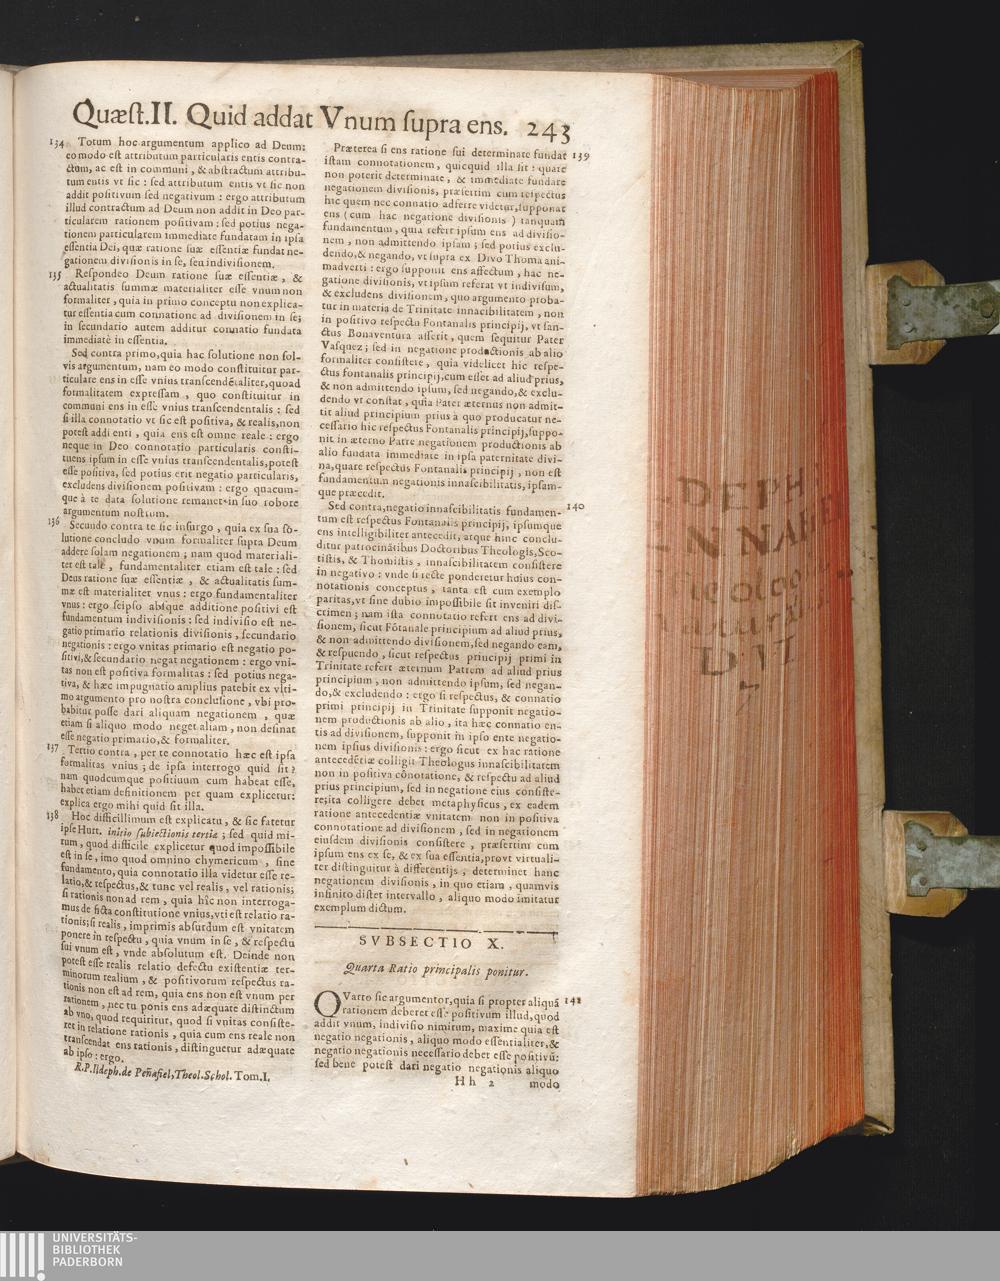 Quæſt.II. Quid addat Vnum ſupra ens. 243
134 Totum hoc argumentum applico ad Deum:
eo modo eſt attributum particularis entis contra-
ctum, ac eſt in communi, & abſtractum attribu-
tum entis vt ſic : ſed attributum entis vt ſic non
addit poſitivum ſed negativum : ergo attributum
illud contractum ad Deum non addit in Deo par-
ticularem rationem poſitivam ; ſed potius nega-
tionem particularem immediate fundatam in ipſa
eſſentia Dei, quæ ratione ſuæ eſſentiæ fundat ne-
gationem diviſionis in ſe, ſeu indiviſionem.
135 Reſpondeo Deum ratione ſuæ eſſentiæ, &
actualitatis ſummæ materialiter eſſe vnum non
formaliter, quia in primo conceptu non explica-
tur eſſentia cum connatione ad diviſionem in ſe;
in ſecundario autem additur connatio fundata
immediatè in eſſentia.
Sed contra primo, quia hac ſolutione non ſol-
vis argumentum, nam eo modo conſtituitur par-
ticulare ens in eſſe vnius tranſcendẽtaliter, quoad
formalitatem expreſſam, quo conſtituitur in
communi ens in eſſe vnius tranſcendentalis : ſed
ſi illa connotatio vt ſic eſt poſitiva, & realis, non
poteſt addi enti, quia ens eſt omne reale : ergo
neque in Deo connotatio particularis conſti-
tuens ipſum in eſſe vnius tranſcendentalis, poteſt
eſſe poſitiva, ſed potius erit negatio particularis,
excludens diviſionem poſitivam : ergo quacum-
que à te data ſolutione remanet in ſuo robore
argumentum noſtrum.
136 Secundo contra te ſic inſurgo, quia ex ſua ſo-
lutione concludo vnum formaliter ſupra Deum
addere ſolam negationem ; nam quod materiali-
ter eſt tale, fundamentaliter etiam eſt tale : ſed
Deus ratione ſuæ eſſentiæ, & actualitatis ſum-
mæ eſt materialiter vnus : ergo fundamentaliter
vnus : ergo ſeipſo abſque additione poſitivi eſt
fundamentum indiviſionis : ſed indiviſio eſt ne-
gatio primario relationis diviſionis, ſecundario
negationis : ergo vnitas primario eſt negatio po-
ſitivi, & ſecundario negat negationem : ergo vni-
tas non eſt poſitiva formalitas : ſed potius nega-
tiva, & hæc impugnatio amplius patebit ex vlti-
mo argumento pro noſtra concluſione, vbi pro-
babitur poſſe dari aliquam negationem, quæ
etiam ſi aliquo modo neget aliam, non deſinat
eſſe negatio primario, & formaliter.
137 Tertio contra, per te connotatio hæc eſt ipſa
formalitas vnius ; de ipſa interrogo quid ſit ?
nam quodcumque poſitiuum cum habeat eſſe,
habet etiam definitionem per quam explicetur:
explica ergo mihi quid ſit illa.
138 Hoc difficillimum eſt explicatu, & ſic fatetur
ipſe Hurt. initio ſubiectionis tertiæ ; ſed quid mi-
rum, quod difficile explicetur quod impoſſibile
eſt in ſe, imo quod omnino chymericum, ſine
fundamento, quia connotatio illa videtur eſſe re-
latio, & reſpectus, & tunc vel realis, vel rationis;
ſi rationis non ad rem, quia hîc non interroga-
mus de ficta conſtitutione vnius, vti eſt relatio ra-
tionis; ſi realis, imprimis abſurdum eſt vnitatem
ponere in reſpectu, quia vnum in ſe, & reſpectu
ſui vnum eſt, vnde abſolutum eſt. Deinde non
poteſt eſſe realis relatio defectu exiſtentiæ ter-
minorum realium, & poſitivorum reſpectus ra-
tionis non eſt ad rem, quia ens non eſt vnum per
rationem, nec tu ponis ens adæquate diſtinctum
ab vno, quod requiritur, quod ſi vnitas conſiſte-
ret in relatione rationis, quia cum ens reale non
tranſcendat ens rationis, diſtinguetur adæquate
ab ipſo : ergo.
R.P. Ildeph. de Peñafiel, Theol. Schol. Tom. I.
Præterea ſi ens ratione ſui determinate fundat 139
iſtam connotationem, quicquid illa ſit : quare
non poterit determinate, & immediate fundare
negationem diviſionis, præſertim cum reſpectus
hic quem nec connatio adferre videtur, ſupponat
ens (cum hac negatione diviſionis) tanquam
fundamentum, quia refert ipſum ens ad diviſio-
nem, non admittendo ipſam ; ſed potius exclu-
dendo, & negando, vt ſupra ex Divo Thoma ani-
madverti : ergo ſupponit ens affectum, hac ne-
gatione diviſionis, vt ipſum referat vt indiviſum,
& excludens diviſionem, quo argumento proba-
tur in materia de Trinitate innacibilitatem, non
in poſitivo reſpectu Fontanalis principij, vt ſan-
ctus Bonaventura aſſerit, quem ſequitur Pater
Vaſquez ; ſed in negatione productionis ab alio
formaliter conſiſtere, quia videlicet hic reſpe-
ctus fontanalis principij, cum eſſet ad aliud prius,
& non admittendo ipſum, ſed negando, & exclu-
dendo vt conſtat, quia Pater æternus non admit-
tit aliud principium prius à quo producatur ne-
ceſſario hic reſpectus Fontanalis principij, ſuppo-
nit in æterno Patre negationem productionis ab
alio fundata immediate in ipſa paternitate divi-
na, quare reſpectus Fontanalis principij, non eſt
fundamentum negationis innaſcibilitatis, ipſam-
que præcedit.
Sed contra, negatio innaſcibilitatis fundamen- 140
tum eſt reſpectus Fontanalis principij, ipſumque
ens intelligibiliter antecedit, atque hinc conclu-
ditur patrocinãtibus Doctoribus Theologis, Sco-
tiſtis, & Thomiſtis, innaſcibilitatem conſiſtere
in negativo : vnde ſi recte ponderetur huius con-
notationis conceptus, tanta eſt cum exemplo
paritas, vt ſine dubio impoſſibile ſit inveniri diſ-
crimen ; nam iſta connotatio refert ens ad divi-
ſionem, ſicut Fõtanale principium ad aliud prius,
& non admittendo diviſionem, ſed negando eam,
& reſpuendo, ſicut reſpectus principij primi in
Trinitate refert æternum Patrem ad aliud prius
principium, non admittendo ipſum, ſed negan-
do, & excludendo : ergo ſi reſpectus, & connatio
primi principij in Trinitate ſupponit negatio-
nem productionis ab alio, ita hæc connatio en-
tis ad diviſionem, ſupponit in ipſo ente negatio-
nem ipſius diviſionis : ergo ſicut ex hac ratione
antecedẽtiæ colligit Theologus innaſcibilitatem
non in poſitiva cõnotatione, & reſpectu ad aliud
prius principium, ſed in negatione eius conſiſte-
re; ita colligere debet metaphyſicus, ex eadem
ratione antecedentiæ vnitatem non in poſitiva
connotatione ad diviſionem, ſed in negationem
eiuſdem diviſionis conſiſtere, præſertim cum
ipſum ens ex ſe, & ex ſua eſſentia, provt virtuali-
ter diſtinguitur à differentijs, determinet hanc
negationem diviſionis, in quo etiam, quamvis
infinito diſtet intervallo, aliquo modo imitatur
exemplum dictum.
SVBSECTIO X.
Quarta Ratio principalis ponitur.
QVarto ſic argumentor, quia ſi propter aliquã 141
rationem deberet eſſe poſitivum illud, quod
addit vnum, indiviſio nimirum, maxime quia eſt
negatio negationis, aliquo modo eſſentialiter, &
negatio negationis neceſſario debet eſſe poſitivũ:
ſed bene poteſt dari negatio negationis aliquo
H h 2 modo
D: 17
UNIVERSITÄTS-
BIBLIOTHEK
PADERBORN